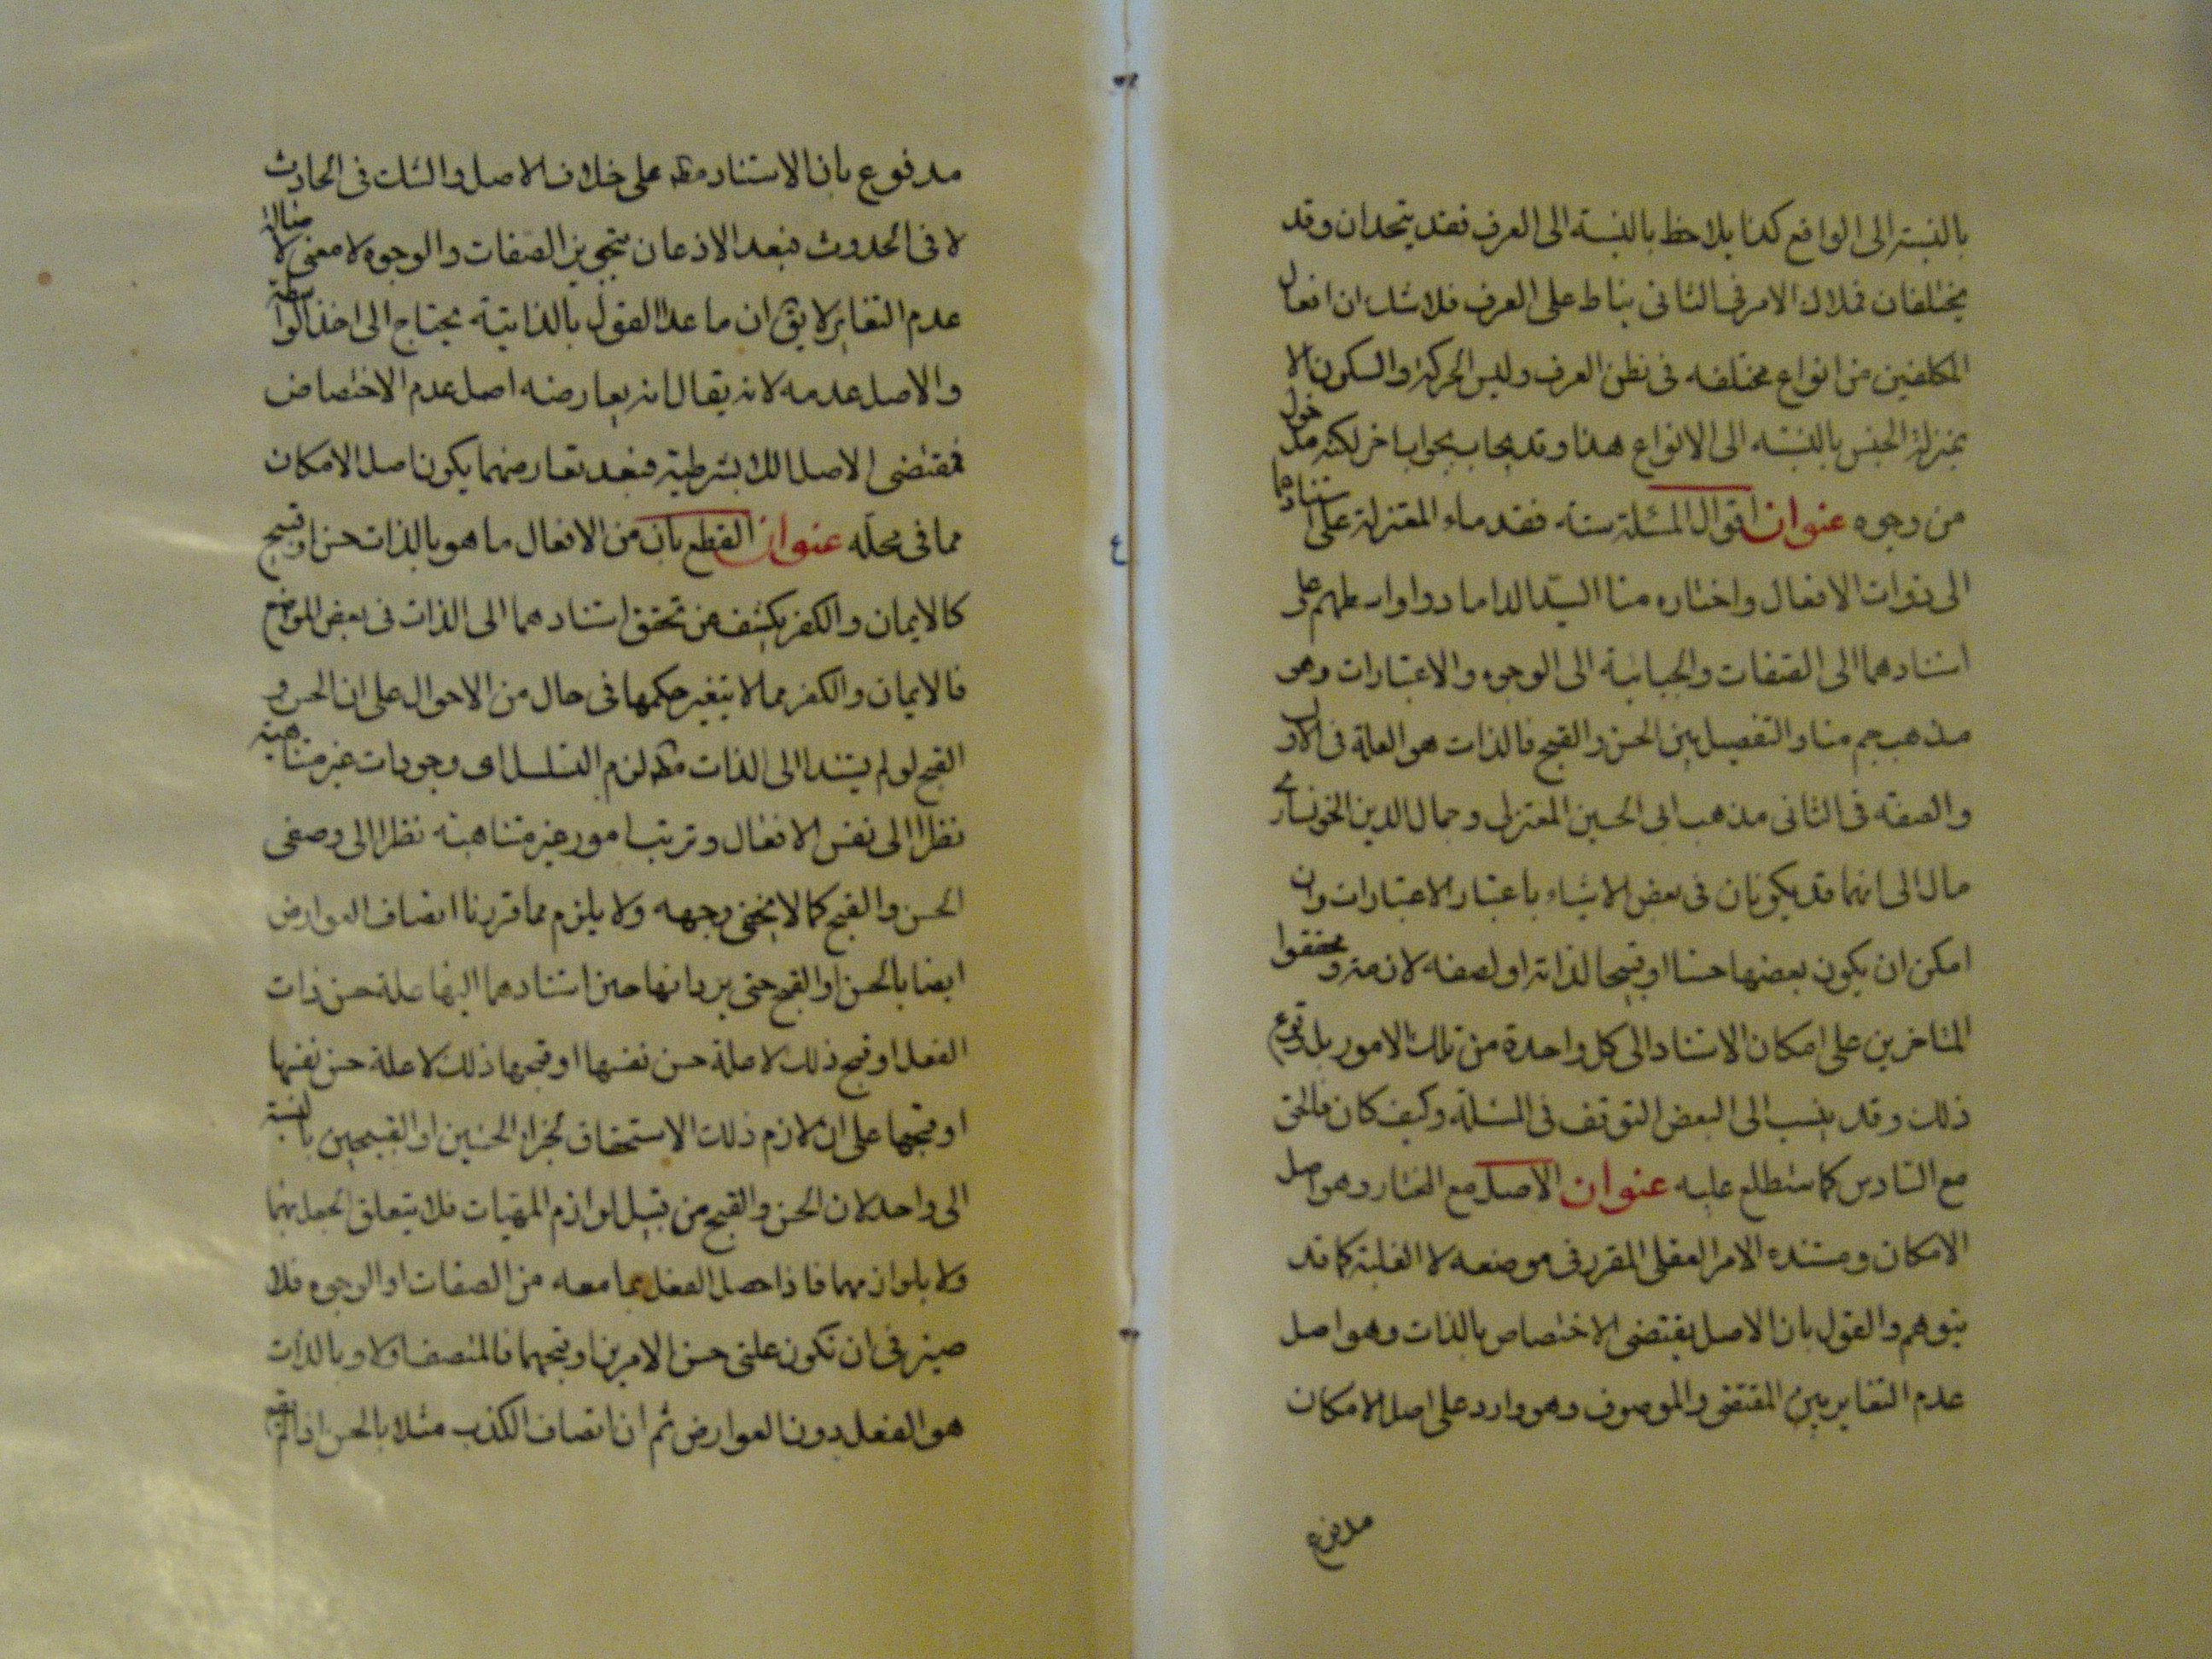 بالنسبة الى الواقع كذا يلاحظ بالنسبة الى العرف فقد يتحدان وقد
يختلفان فملاك الامر فى الثانى يناط على العرف فلا شك ان افعال
المكلفين من انواع مختلفه فى نظر العرف وليس الحركة والسكون الا
بمنزلة الجنس بالنسبه الى الانواع هذا وقد يجاب بجواب اخر لكنه مدخول
من وجوه عنوان اقوال المسئلة ستة فقدماء المعتزلة على استنادهما
الى ذوات الافعال واختاره منا السيد الداماد واواسطهم على
استنادهما الى الصفات والجبائية الى الوجوه والاعتبارات وهو
مذهب جم منا والتفصيل بين الحسن والقبح فالذات هو العلة فى الاول
والصفة فى الثانى مذهب ابى الحسين المعتزلى وجمال الدين الخونسارى
مال الى انهما قد يكونان فى بعض الاشياء باعتبار الاعتبارات وان
امكن ان يكون بعضها حسنا او قبيحا لذاته او لصفه لازمة ومحققوا
المتاخرين على امكان الاستناد الى كل واحدة من تلك الامور بل وقوع
ذلك وقد ينسب الى البعض التوقف فى المسئلة وكيف كان فالحق
مع السادس كما ستطلع عليه عنوان الاصل مع المختار وهو اصل
الامكان ومستنده الامر العقلى المقرر فى موضعه لا الغلبة كما قد
يتوهم والقول بان الاصل يقتضى الاختصاص بالذات وهو اصل
عدم التغاير بين المقتضى والموصوف وهو وارد على اصل الامكان
مدفوع
مدفوع بان الاستناد مط على خلاف الاصل والشك فى الحادث
لا فى الحدوث فبعد الاذعان بتجويز الصفات والوجوه لا معنى لاصالة
عدم التغاير لا يق ان ما عدا القول بالذاتية يحتاج الى اخذ الواسطة
والاصل عدمه لانه يقال انه يعارضه اصل عدم الاختصاص
فمقتضى الاصل الك بشرطية فبعد تعارضهما يكون اصل الامكان
مما فى محله عنوان القطع بان من الافعال ما هو بالذات حسن او قبيح
كالايمان والكفر يكشف عن تحقق استنادهما الى الذات فى بعض المواضع
فالايمان والكفر مما لا يتغير حكمها فى حال من الاحوال على ان الحسن و
القبح لو لم يستندا الى الذات مط لزم التسلسل اى وجودات غير متناهية
نظرا الى نفس الافعال وترتب امور غير متناهية نظرا الى وصفى
الحسن والقبح كما لا يخفى وجهه ولا يلزم مما قررنا اتصاف العوارض
ايضا بالحسن او القبح حتى يرد انها حين استنادهما اليها علة حسن ذات
الفعل او قبح ذلك لا علة حسن نفسها او قبحها ذلك لا علة حسن نفسها
او قبحها على ان لازم ذلك الاستحقاق لجزاء الحسنين او القبيحين بالنسبة
الى واحد لان الحسن والقبح من قبيل لوازم المهيات فلا يتعلق الجعل بهما
ولا بلوازمهما فاذا حصل الفعل بما معه من الصفات او الوجوه فلا
ضير فى ان تكون علتى حسن الامرين او قبحهما فالمتصف اولا وبالذات
هو الفعل دون العوارض ثم ان اتصاف الكذب مثلا بالحسن اذا